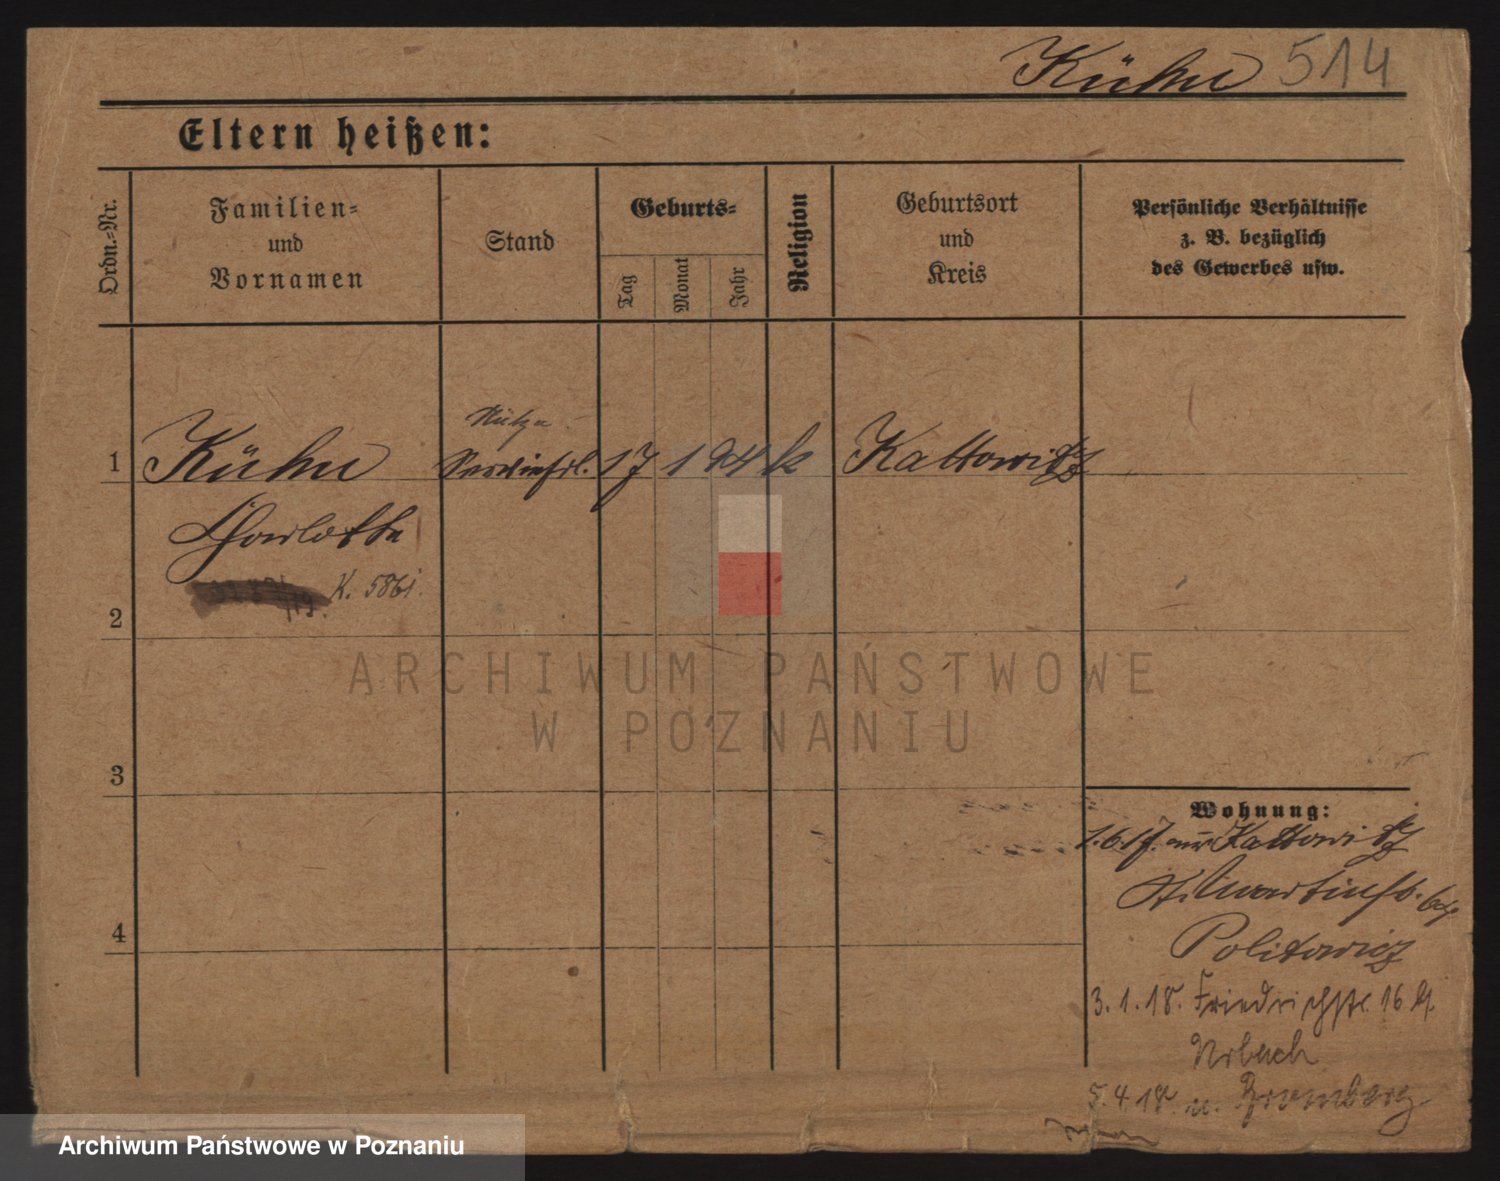 Kühn 514
Eltern heißen:
Ordn.-Nr.
Familien-
und
Vornamen
Stand
Geburts-
Tag
Monat
Jahr
Religion
Geburtsort
und
Kreis
Persönliche Verhältnisse
z. B. bezüglich
des Gewerbes usw.
Stütze
1 Kühn 17 1 94 k Kattowitz
Charlotte
K. 5861.
2
ARCHIWUM PAŃSTWOWE
W POZNANIU
3
Wohnung:
1.6.17. aus Kattowitz
St. Martinstr.
4
Politowicz
3.1.18. Friedrichstr. 16
Urbach
5.4.18. n. Bromberg
Archiwum Państwowe w Poznaniu